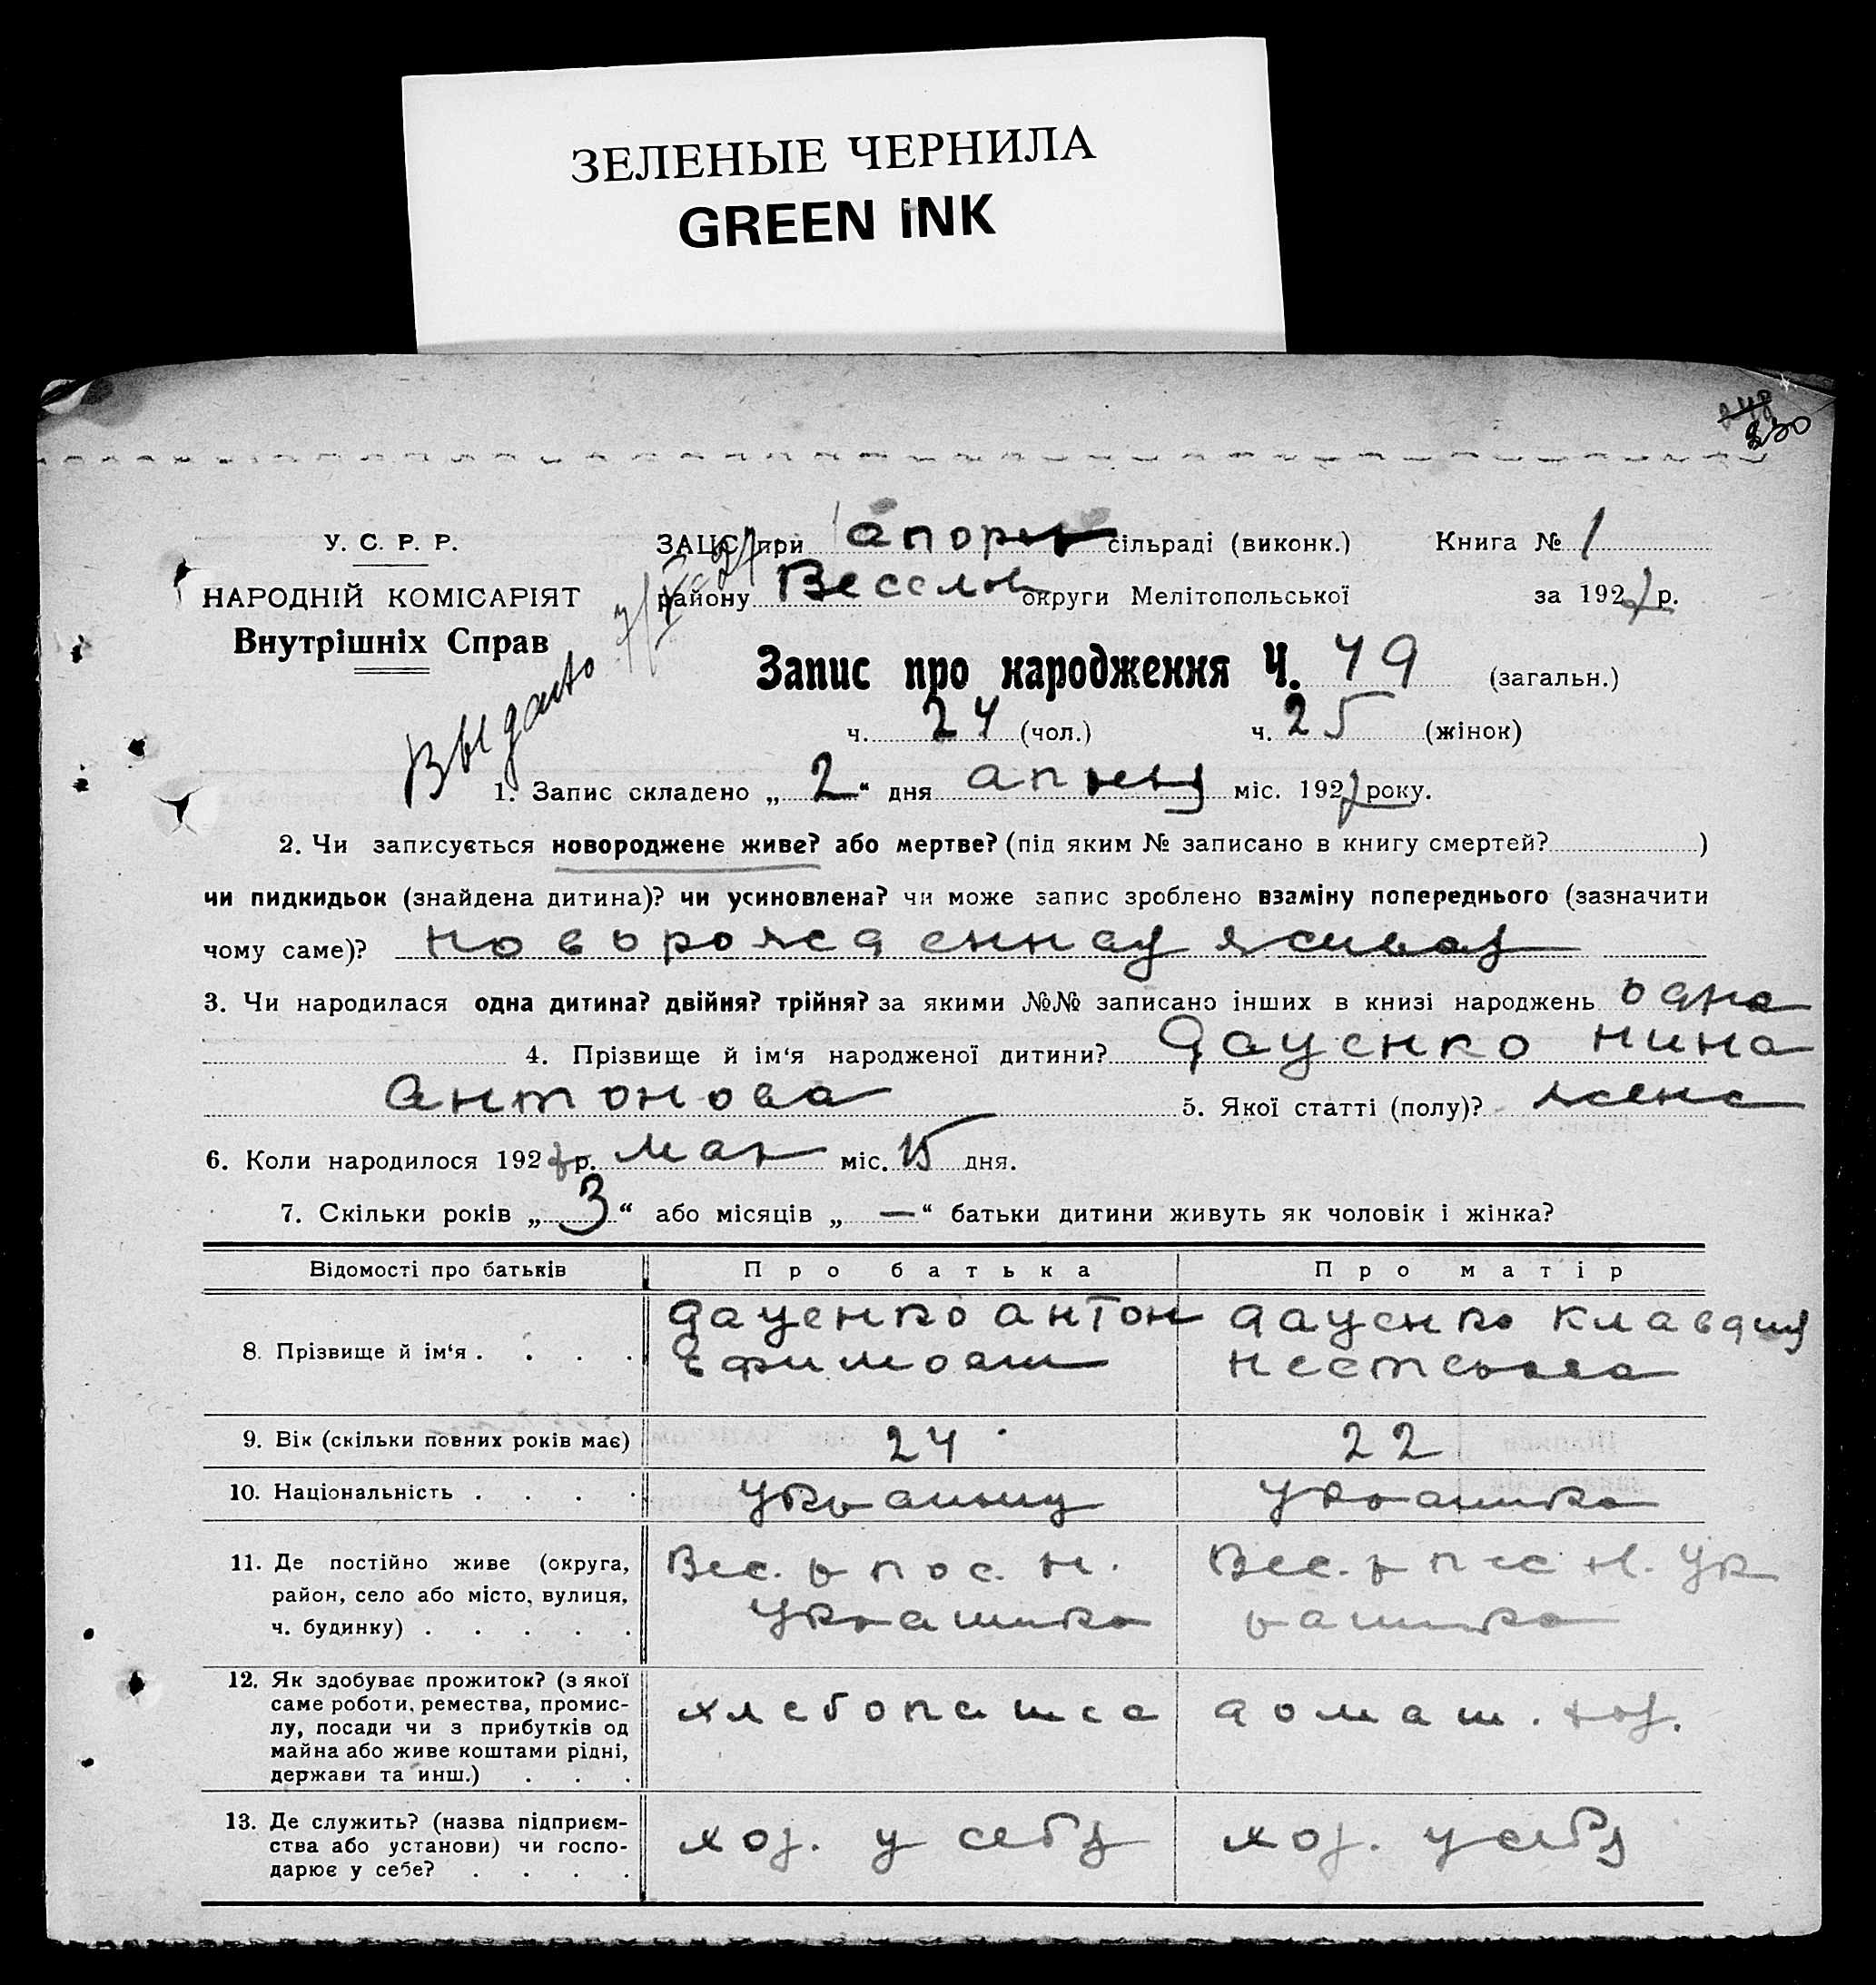 ЗЕЛЕНЫЕ ЧЕРНИЛА
GREEN INK
230
У. С. Р. Р.
НАРОДНІЙ КОМІСАРІЯТ
Внутрішніх Справ
ЗАЦС при сільраді (виконк.) Книга № 1
району Веселов округи Мелітопольської за 1927 р.
Выдано
Запис про народження Ч. 49 (загальн.)
ч. 24 (чол.) ч. 25 (жінок)
1. Запис складено „2“ дня апреля міс. 1927 року.
2. Чи записується новороджене живе? або мертве? (під яким № записано в книгу смертей? )
чи пидкидьок (знайдена дитина)? чи усиновлена? чи може запис зроблено взаміну попереднього (зазначити
чому саме)? новорожденная живая
3. Чи народилася одна дитина? двійня? трійня? за якими №№ записано інших в книзі народжень одна
4. Прізвище й ім‘я народженої дитини? Даценко Нина
Антонова 5. Якої статті (полу)? жена
6. Коли народилося 1927 р. мар міс. 15 дня.
7. Скільки років „3“ або місяців „—“ батьки дитини живуть як чоловік і жінка?
Відомості про батьків Про батька Про матір
8. Прізвище й ім‘я . . . .
Даценко Антон
Ефимови
Даценко Клавдия
Нестерова
9. Вік (скільки повних років має) 24 22
10. Національність . . . . Украинец Украинка
11. Де постійно живе (округа,
район, село або місто, вулиця,
ч. будинку) . . . . .
Вес. р пос. Н.
Украинка
Вес. р пос Н. Ук
раинка
12. Як здобуває прожиток? (з якої
саме роботи, ремества, промис-
лу, посади чи з прибутків од
майна або живе коштами рідні,
держави та инш.) . . .
хлебопашес
домаш. хоз.
13. Де служить? (назва підприєм-
ства або установи) чи госпо-
дарює у себе? . . . .
хоз. у себя
хоз. у себя